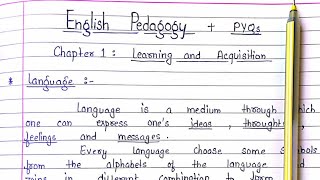 English Pedagogy + PYQs
Chapter 1 : Learning and Acquisition
* Language :-
Language is a medium through which
one can express one's ideas, thoughts,
feelings and messages.
Every language choose some symbols
from the alphabets of the language and
in different combination to form